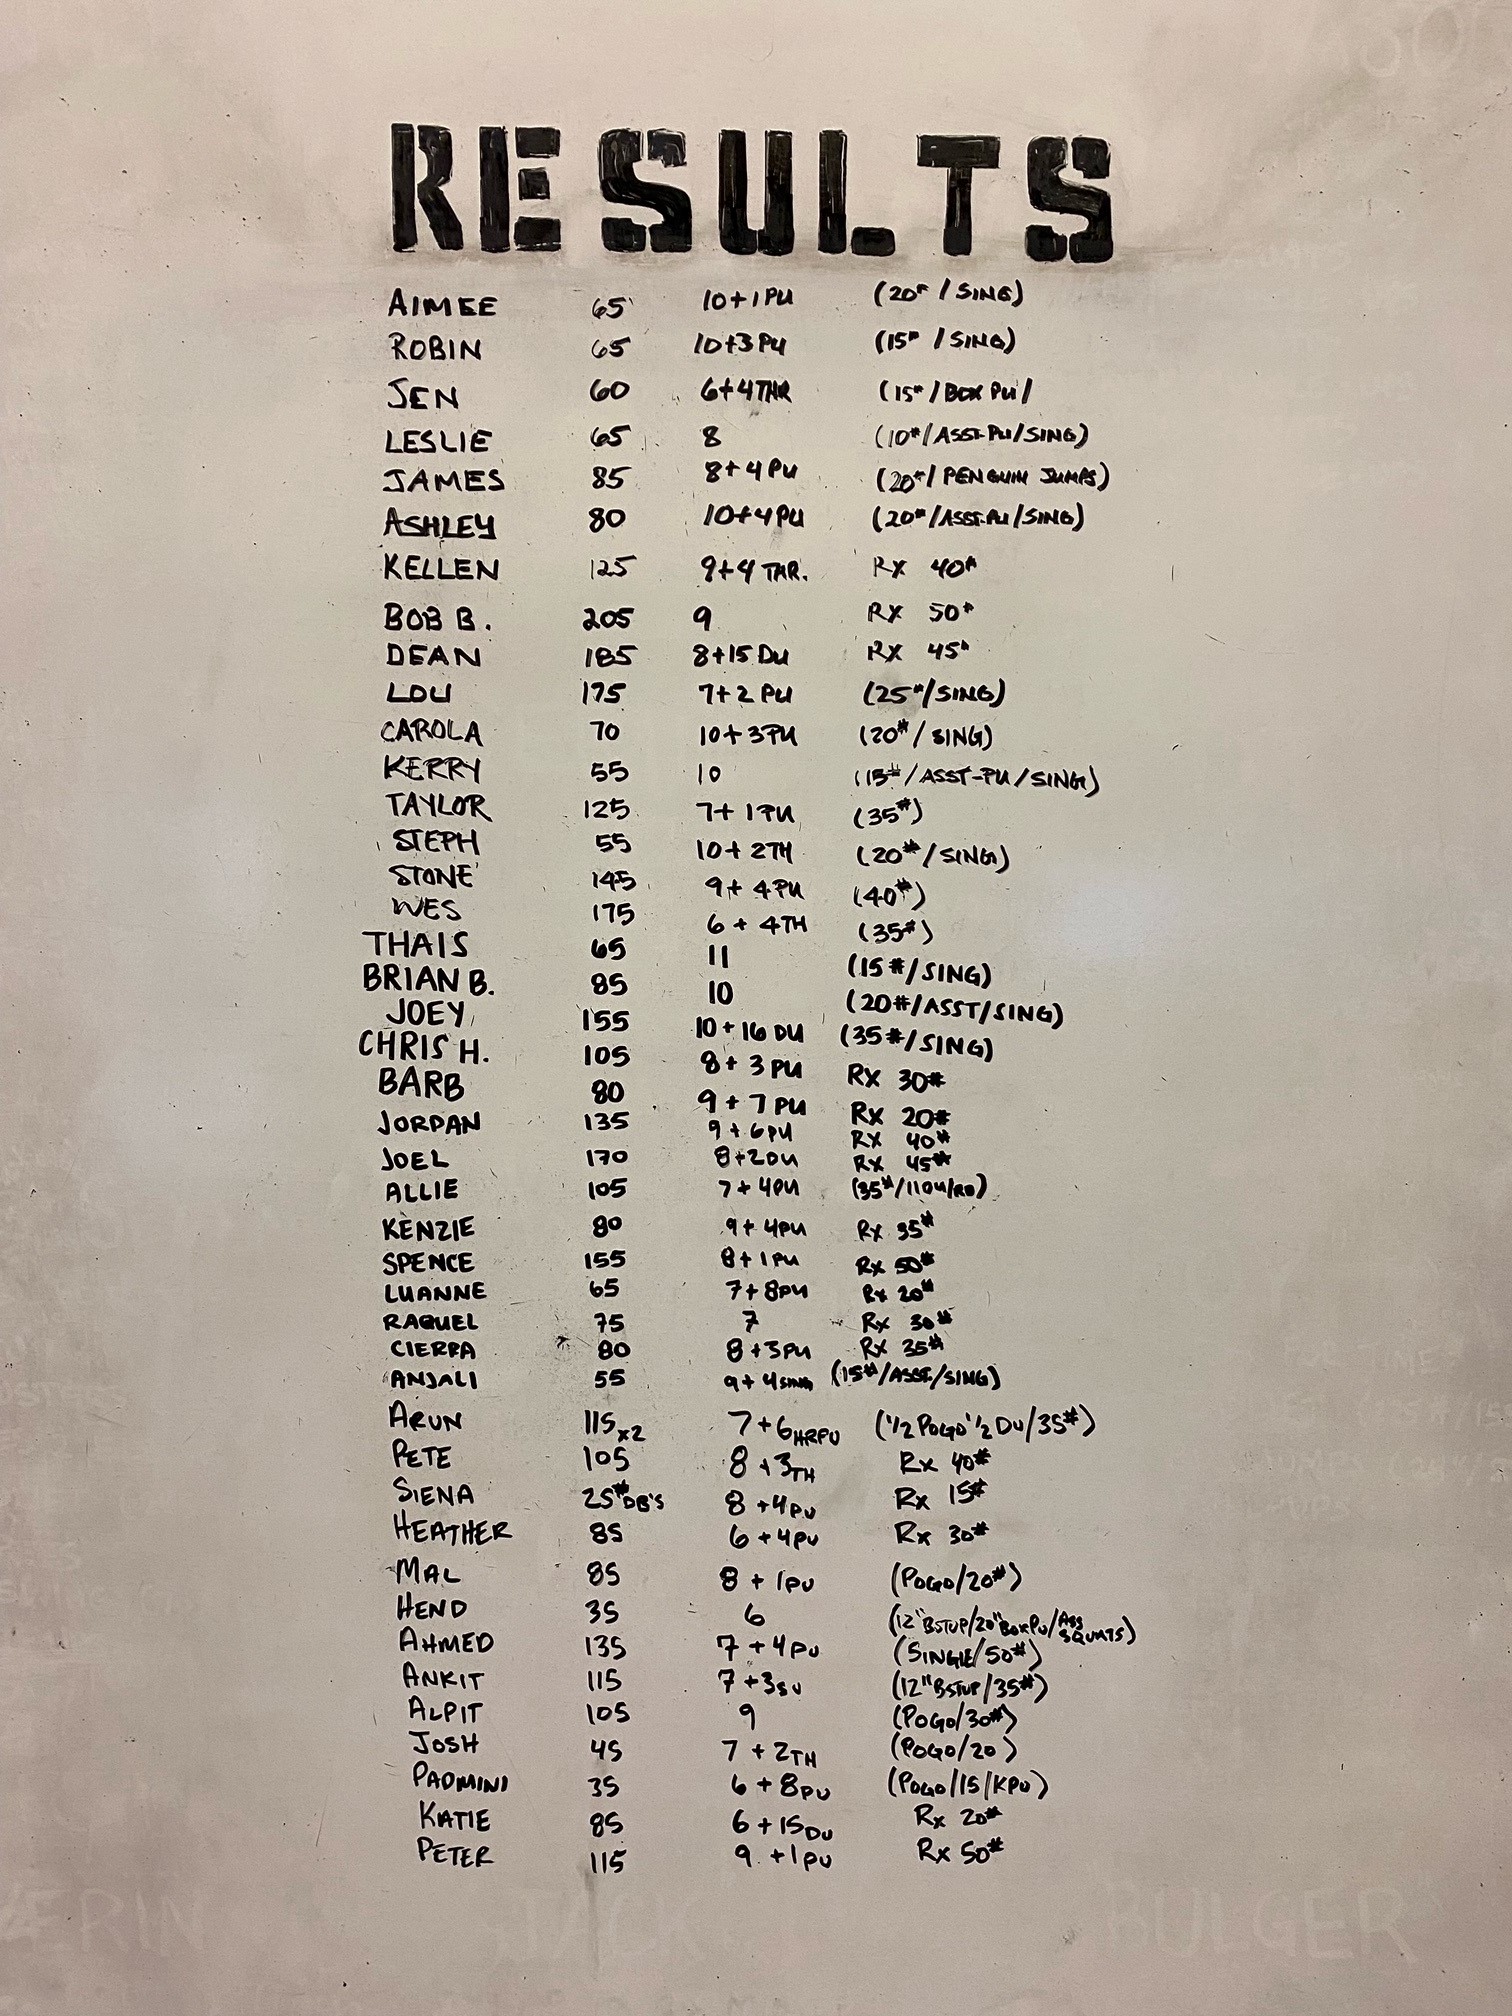 RESULTS
AIMEE 65 10+1PU (20# / SING)
ROBIN 65 10+3PU (15# / SING)
JEN 60 6+4THR (15# / BOX PU /
LESLIE 65 8 (10#/ASST-PU/SING)
JAMES 85 8+4PU (20#/ PENGUIN JUMPS)
ASHLEY 80 10+4PU (20#/ASST-PU/SING)
KELLEN 125 9+4 THR. RX 40#
BOB B. 205 9 RX 50#
DEAN 185 8+15 DU RX 45#
LOU 175 7+2 PU (25#/SING)
CAROLA 70 10+3PU (20#/ SING)
KERRY 55 10 (15#/ASST-PU/SING)
TAYLOR 125 7+1PU (35#)
STEPH 55 10+2TH (20#/SING)
STONE 145 9+ 4PU (40#)
WES 175 6 + 4TH (35#)
THAIS 65 11 (15#/SING)
BRIAN B. 85 10 (20#/ASST/SING)
JOEY 155 10+16 DU (35#/SING)
CHRIS H. 105 8+ 3 PU RX 30#
BARB 80 9 + 7 PU RX 20#
JORDAN 135 9 + 6PU RX 40#
JOEL 170 8+2DU RX 45#
ALLIE 105 7 + 4PU (35#/11DU/RD)
KENZIE 80 9+ 4PU RX 35#
SPENCE 155 8+1PU RX 50#
LUANNE 65 7+8PU RX 20#
RAQUEL 75 7 RX 30#
CIERRA 80 8+3PU RX 35#
ANJALI 55 9+4SING (15#/ASST./SING)
ARUN 115x2 7+6HRPU (1/2 POGO 1/2 DU/35#)
PETE 105 8+3TH RX 40#
SIENA 25#DB'S 8+4PU RX 15#
HEATHER 85 6+4PU RX 30#
MAL 85 8+1PU (POGO/20#)
HEND 35 6 (12"BSTUP/20"BOXPU/ASS SQUATS)
AHMED 135 7+4PU (SINGLE/50#)
ANKIT 115 7+3SU (12"BSTUP/35#)
ALPIT 105 9 (POGO/30#)
JOSH 45 7+2TH (POGO/20)
PADMINI 35 6+8PU (POGO/15/KPU)
KATIE 85 6+15DU RX 20#
PETER 115 9.+1PU RX 50#
ERIN JACK BULGER